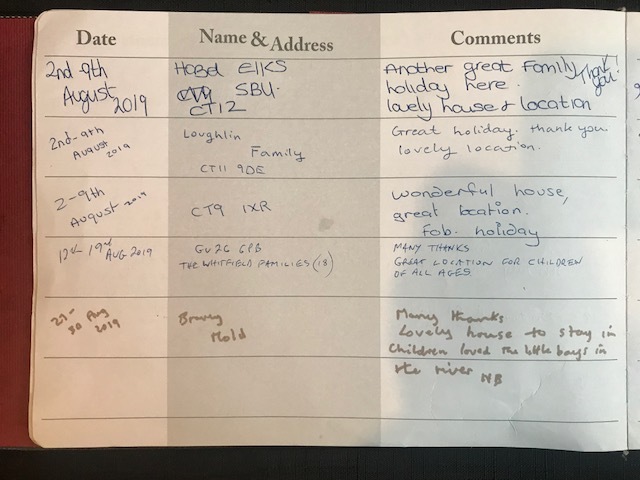 Date Name & Address Comments
2nd-9th
August
2019
Hazel Elks
5BU.
CT12
Another great Family
holiday here.
lovely house & location
Thank you!
2nd-9th
August 2019
Loughlin
Family
CT11 9DE
Great holiday. thank you.
lovely location.
2-9th
August 2019
CT9 1XR
wonderful house,
great location.
Fab. holiday
12th 19th
AUG 2019
GU26 6PB
THE WHITFIELD FAMILIES (18)
MANY THANKS
GREAT LOCATION FOR CHILDREN
OF ALL AGES
30 Aug
2019
Mold
Many thanks
Lovely house to stay in
Children loved the little bays in
the river NB